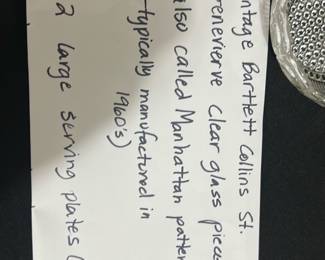 ntage Bartlett Collins St.
enevierve clear glass piece
also called Manhattan patter
(typically manufactured in
1960's)
2 large serving plates (